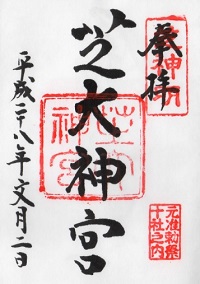 奉拝
芝大神宮
平成二十八年文月二日
芝大神宮
元准勅祭
十社之内